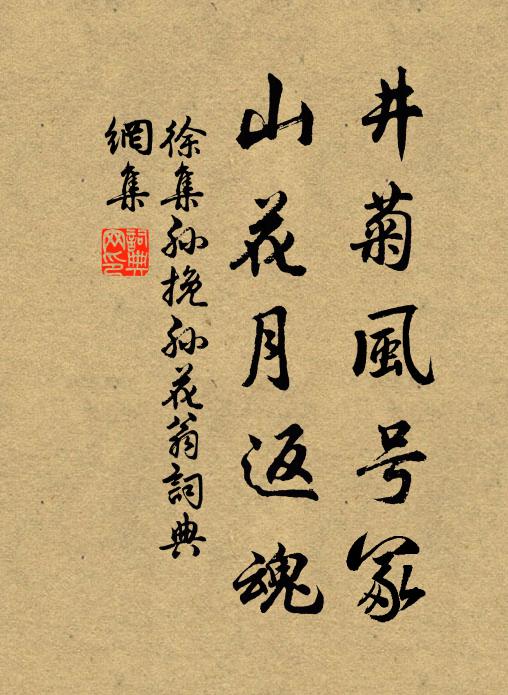 井菊風号冢
山花月返魂
徐集孙挽孙花翁詞典
網集
詞典
网印